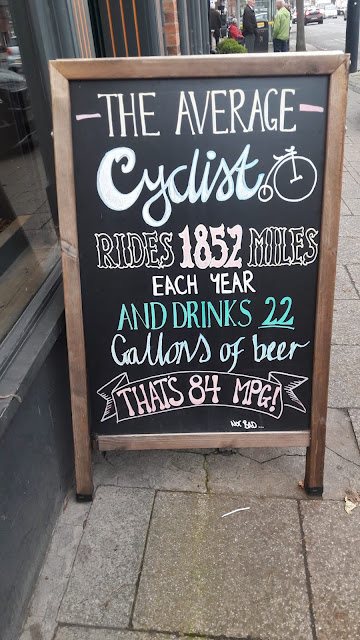 -THE AVERAGE-
Cyclist
RIDES 1852 MILES
EACH YEAR
AND DRINKS 22
Gallons of beer
THAT'S 84 MPG!
NOT BAD...